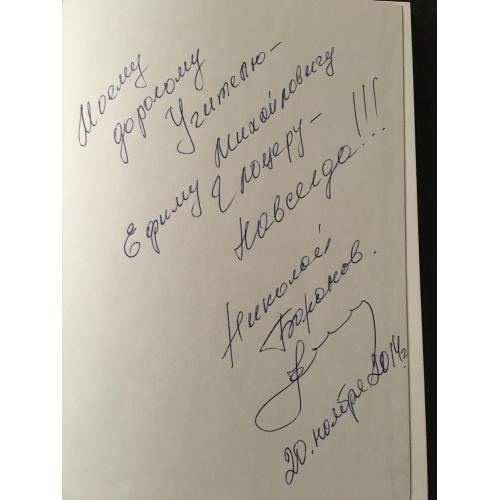 Моему
дорогому
Учителю—
Ефиму Михайловичу
Глоцеру—
Навсегда!!!
Николай
Баранов.
20. ноября 2014г